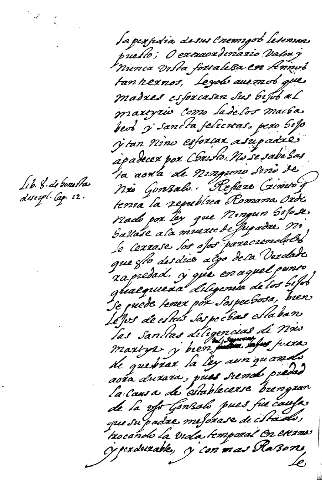 la perfidia de sus enemigos le tenian
puesto; O extraordinario valor y
Nunca vista fortaleza en Annos
tan tiernos, Leydo auemos que
Madres esforcasen sus hijos al
martyrio como la de los macha
beos y sancta felicitas, pero hijo
y tan Nino esforcar a su padre
a padecer por christo. No se sabe has
ta aora de Ninguno sino de
Nro Gonzalo. Refiere
tenia la republica Romana Orde
nado por ley que Ningun hijo se
hallase a la muerte de su padre Ni
le cerrase los ojos pareciendoles
que esto desdice algo de la Verdade
ra piedad. y que en aquel punto
qualequiera diligencia de los hijos
se puede tener por sospechosa, bien
lejos de estas sospechas estaban
las sanctas diligencias di Nro
Martyr y bien para
de quebrar la ley aun quando
aora durara, pues siendo piedad
la causa de establecerse bien gran
de la uso Gonzalo pues fue causa
que su padre mejorase de estado,
trocando la vida temporal en eterna
y perdurable, y con mas Razon
le
Lib. 8. de
discipl. Cap. 12.